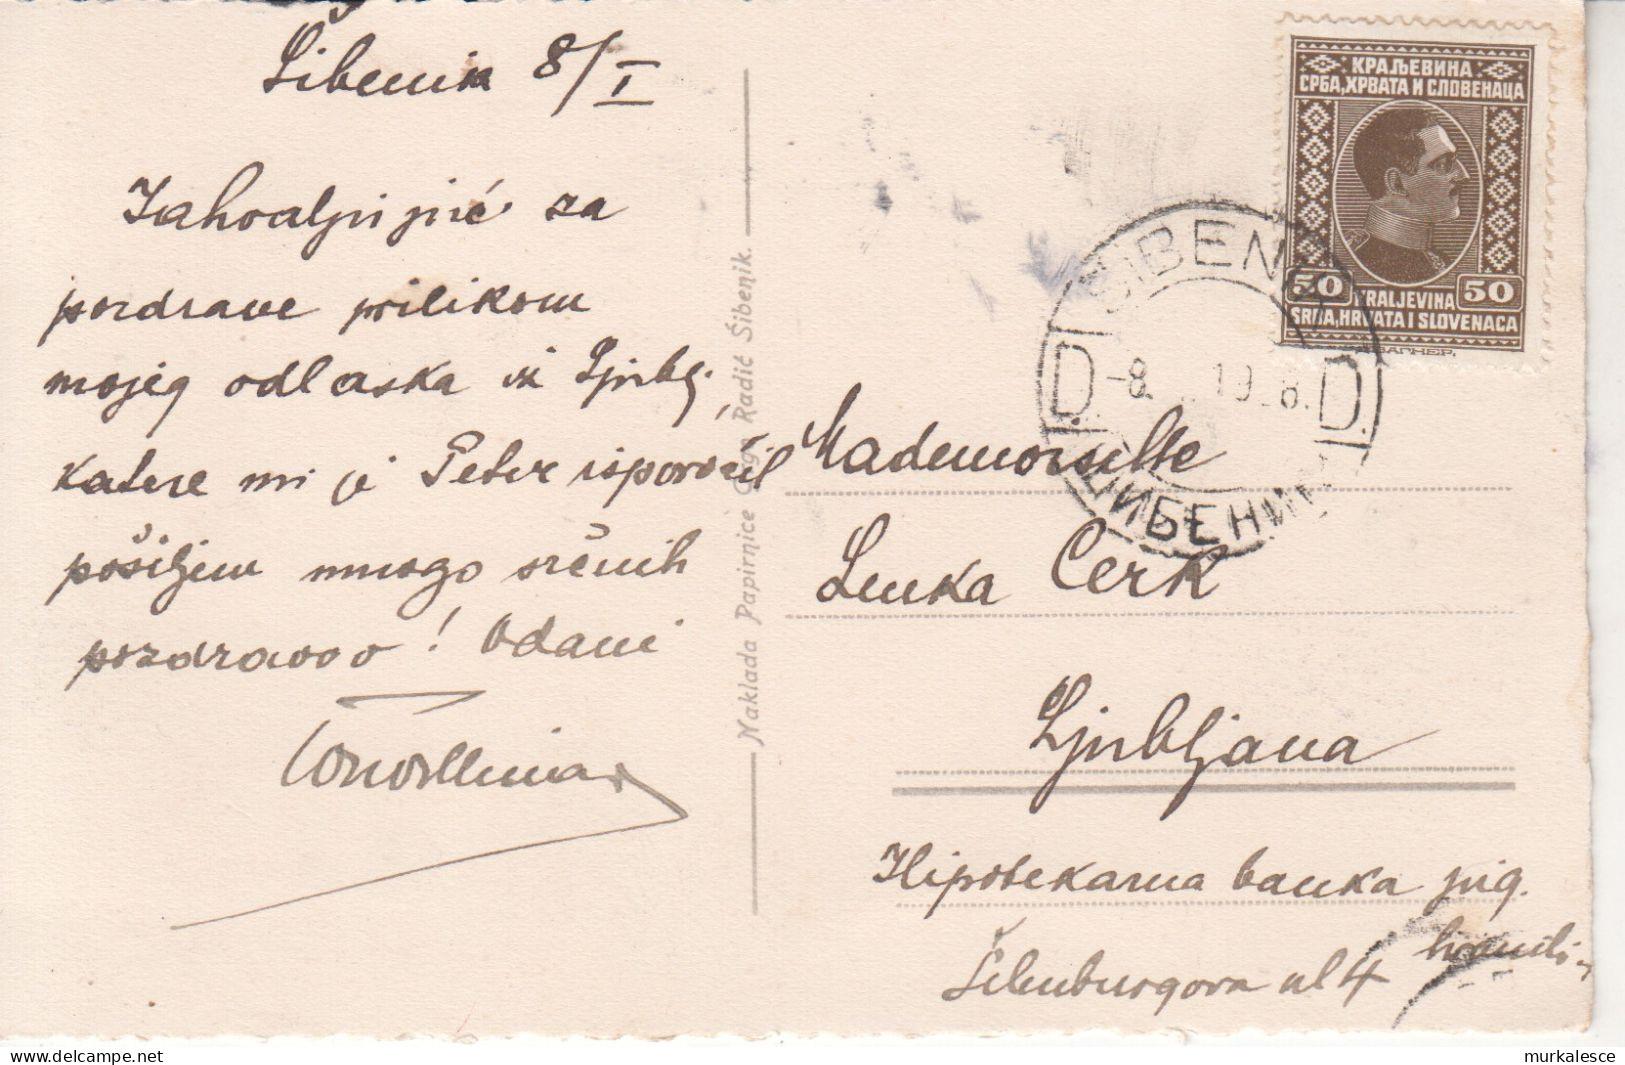 Šibenik 8/I
Zahvaljujić za
pozdrave prilikom
mojeg odlaska iz Ljublj.,
katere mi je Peter isporočil
pošiljem mnogo srčnih
pozdravov! Vdani
Naklada Papirnice Grga Radić Šibenik.
КРАЉЕВИНА
СРБА, ХРВАТА И СЛОВЕНАЦА
50 KRALJEVINA 50
SRBA, HRVATA I SLOVENACA
ВАГНЕР.
ŠIBENIK
D -8. 19 8. D
ШИБЕНИК
Mademoiselle
Lenka Cerk
Ljubljana
Hipotekarna banka jug.
hranil.
Šelenburgova ul 4
murkalesce